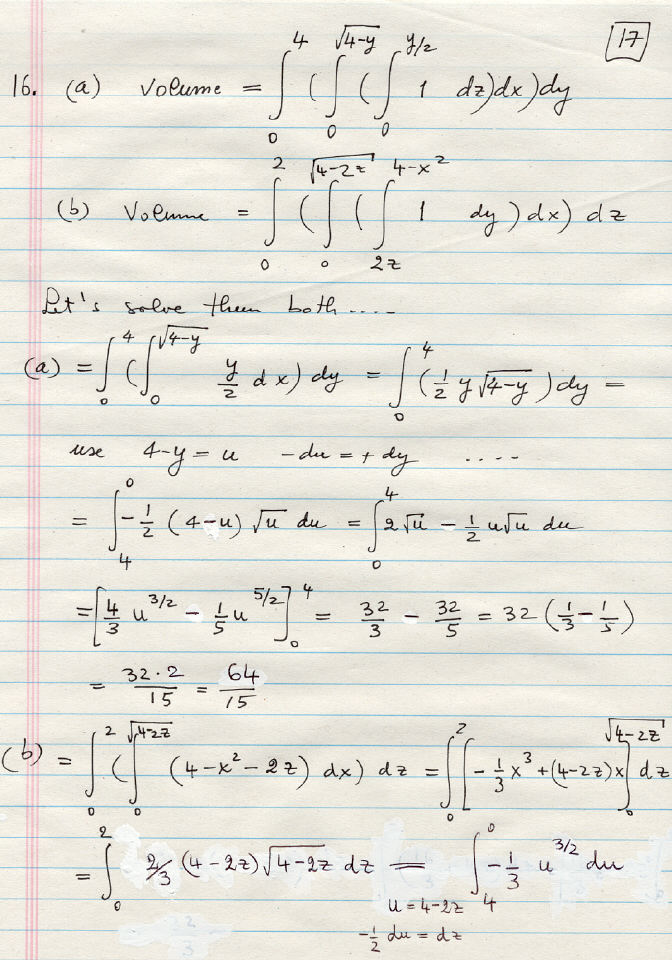 17
16. (a) Volume = ∫₀⁴ ( ∫₀^√(4-y) ( ∫₀^(y/2) 1 dz)dx)dy
(b) Volume = ∫₀² ( ∫₀^√(4-2z) ( ∫_(2z)^(4-x²) 1 dy ) dx) dz
Let's solve them both ....
(a) = ∫₀⁴ ( ∫₀^√(4-y) y/2 dx) dy = ∫₀⁴ ( 1/2 y √(4-y) ) dy =
use 4-y = u -du = + dy ....
= ∫₄⁰ - 1/2 (4-u) √u du = ∫₀⁴ 2√u - 1/2 u√u du
= [ 4/3 u^(3/2) - 1/5 u^(5/2) ]₀⁴ = 32/3 - 32/5 = 32 ( 1/3 - 1/5 )
= 32·2/15 = 64/15
(b) = ∫₀² ( ∫₀^√(4-2z) (4-x²-2z) dx) dz = ∫₀² [ - 1/3 x³ + (4-2z)x ]₀^√(4-2z) dz
= ∫₀² 2/3 (4-2z)√(4-2z) dz = ∫₄⁰ - 1/3 u^(3/2) du
u = 4-2z
- 1/2 du = dz